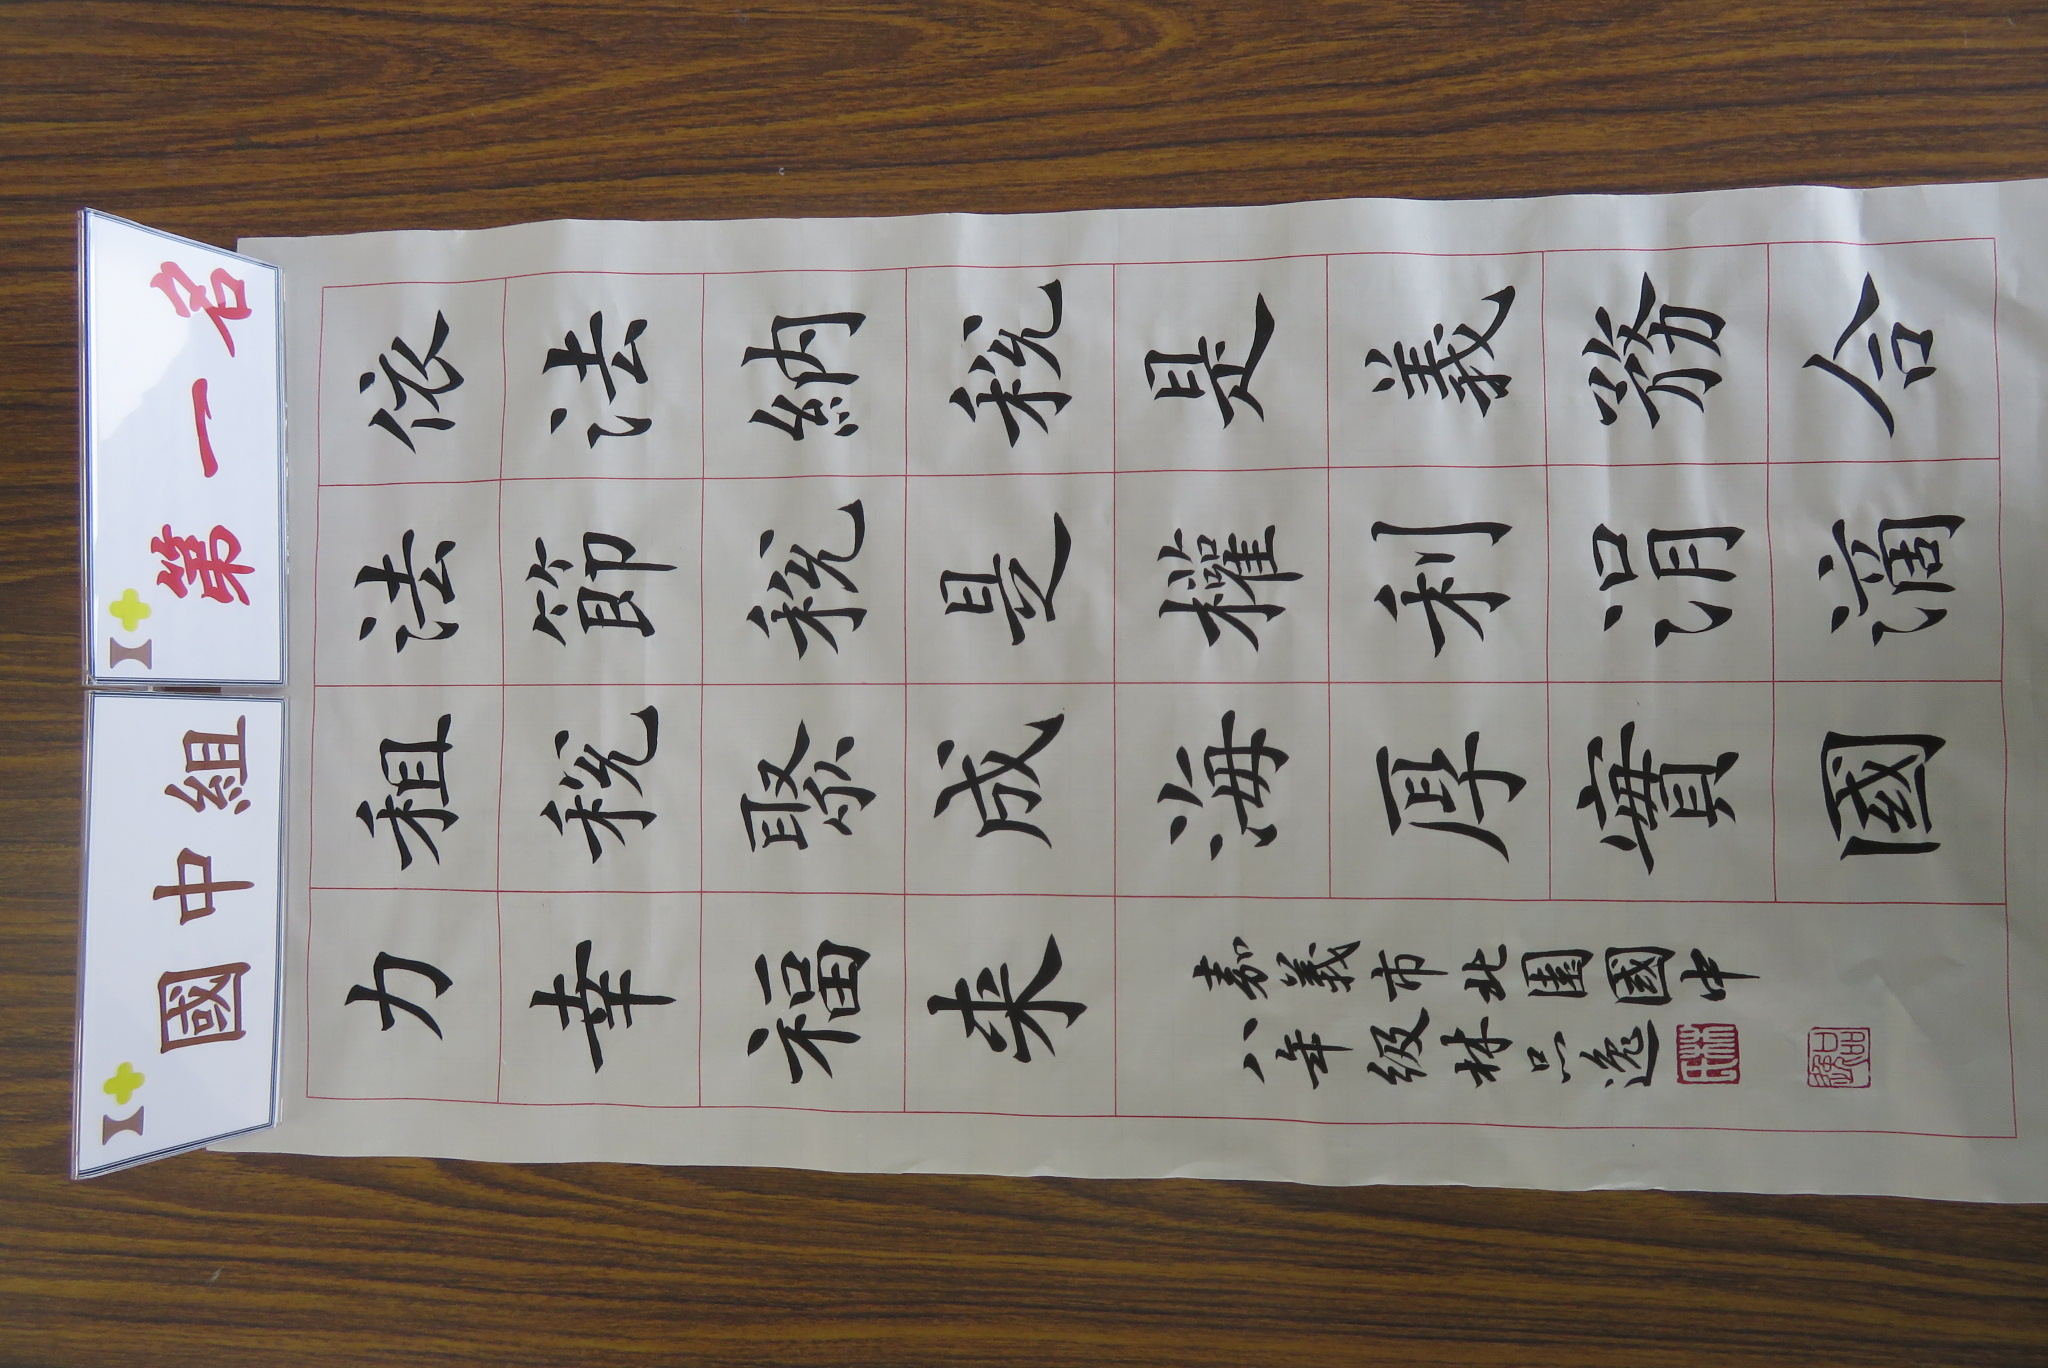 國中組
第一名
依法納税是義務合
法節税是權利涓滴
租税聚成海厚實國
力幸福来
嘉義市北園國中
八年級林只逸